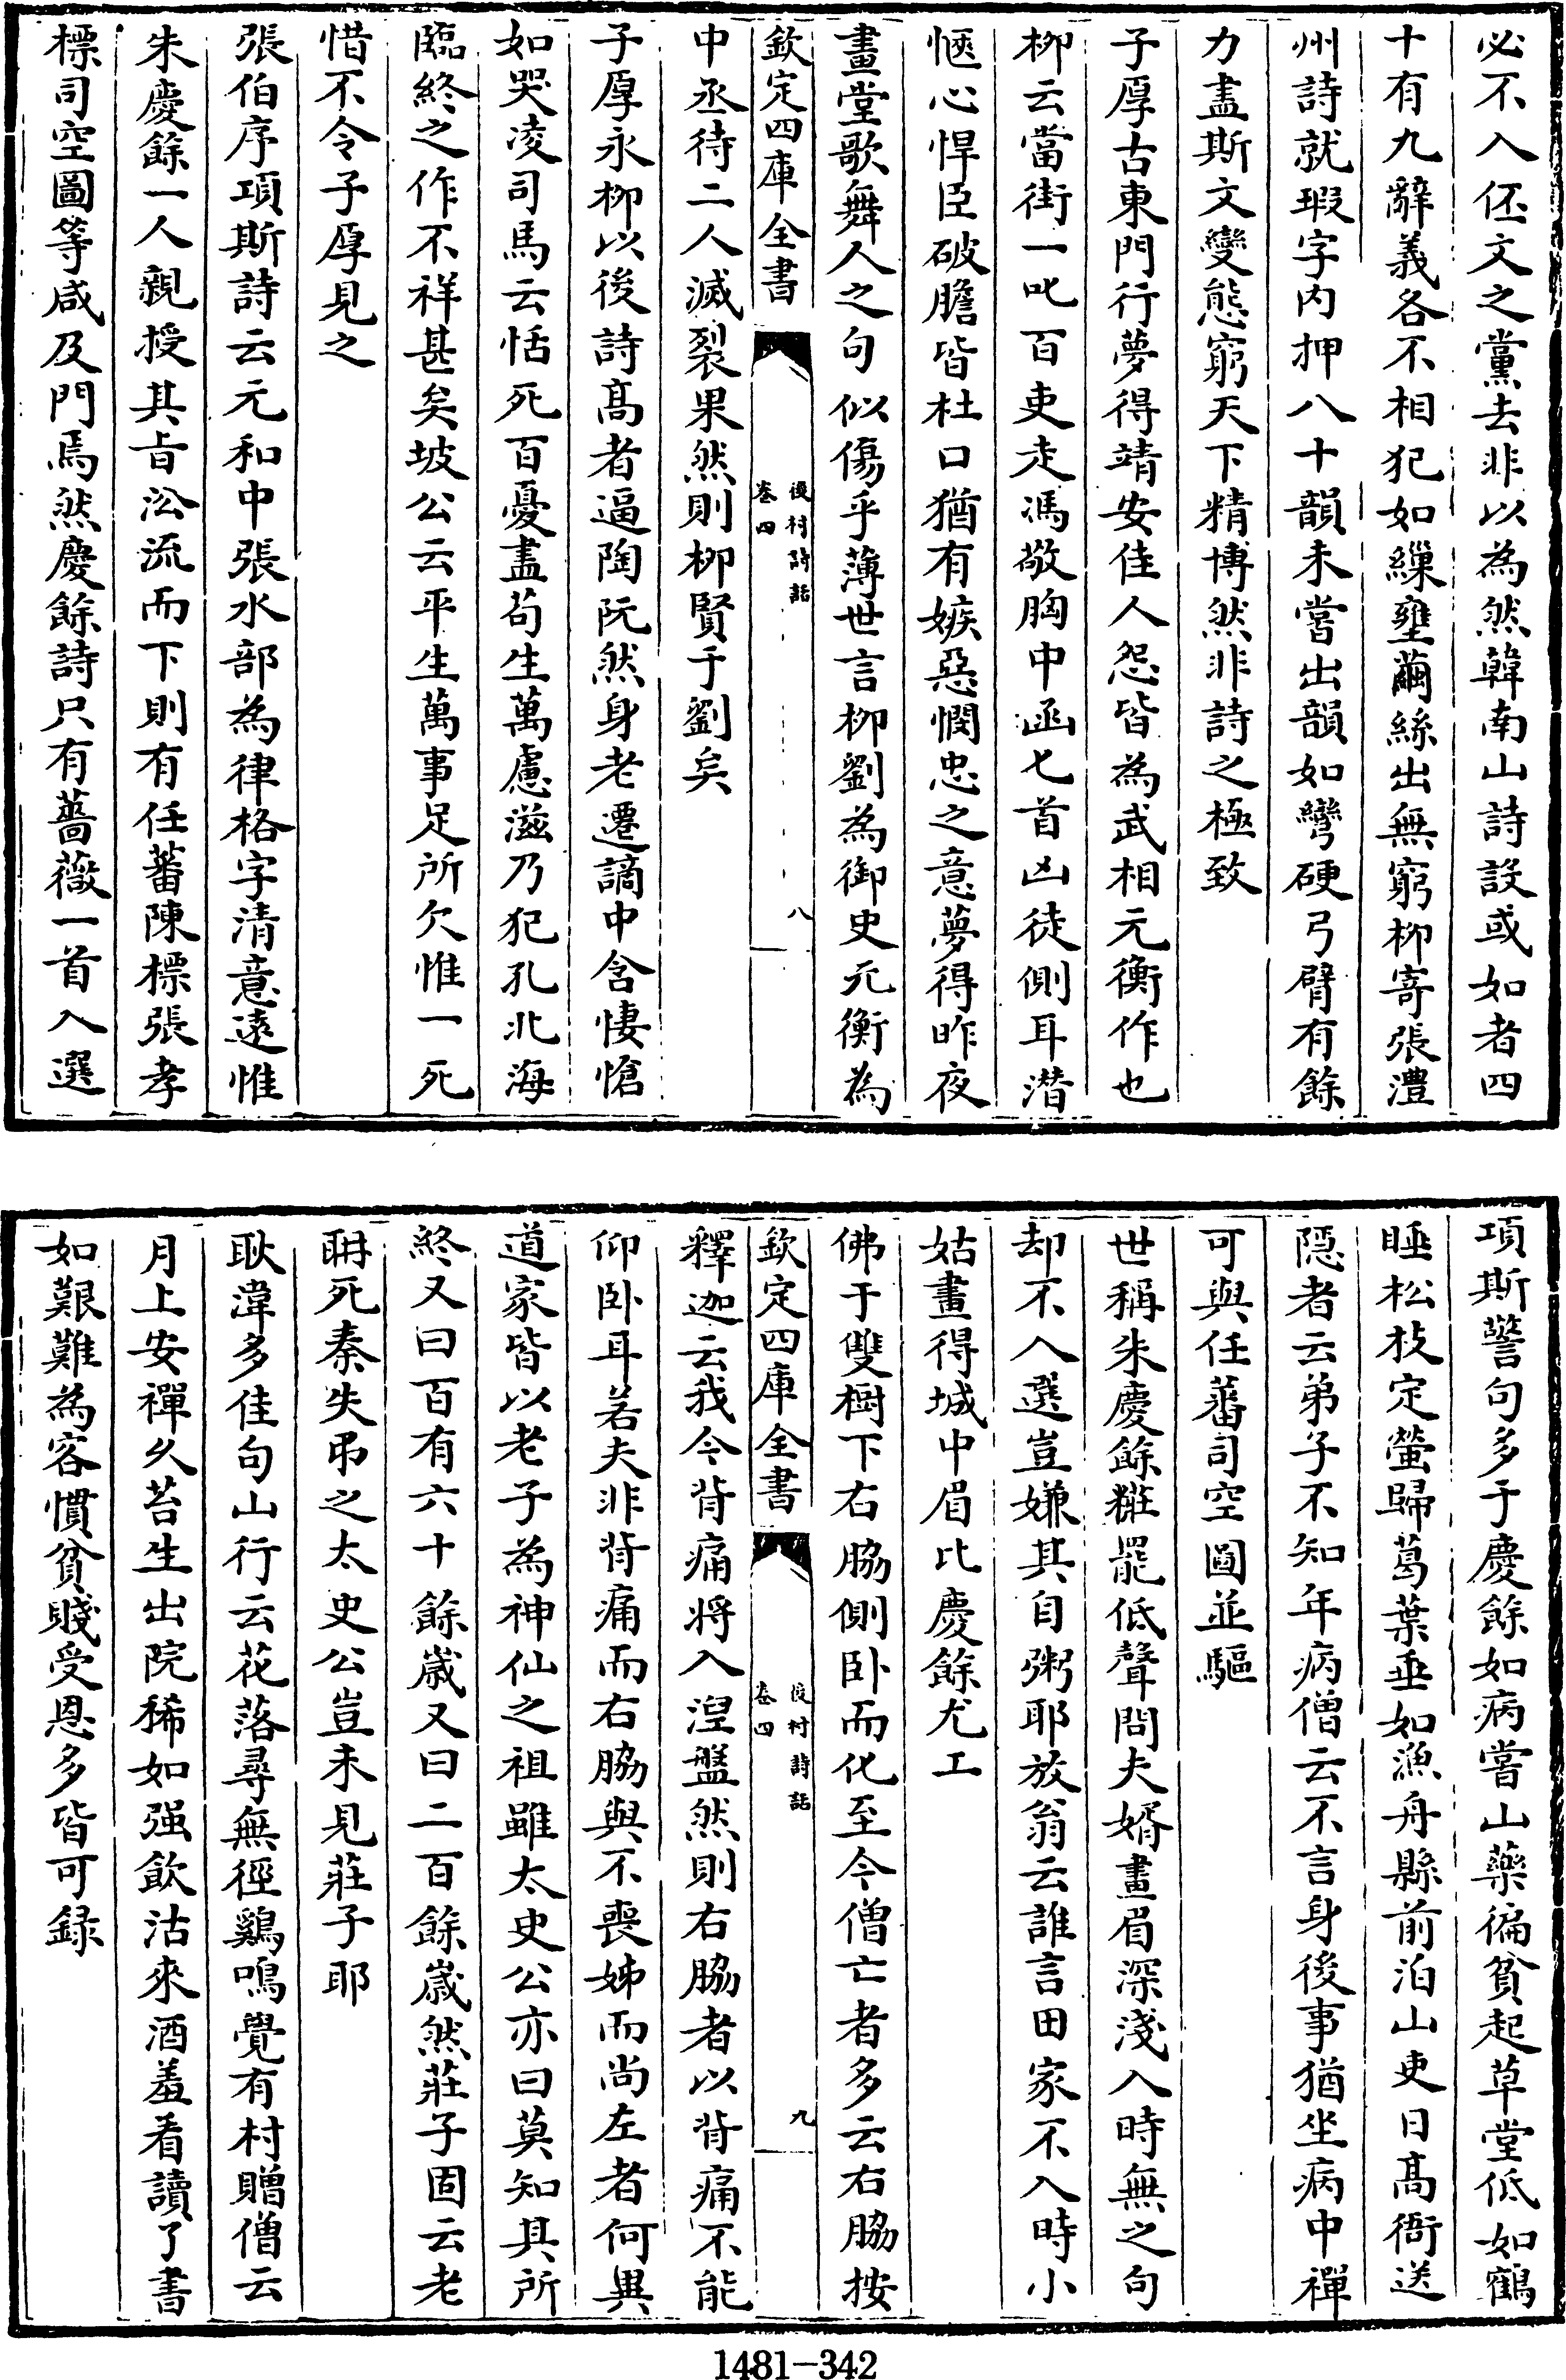 必不入伾文之黨去非以為然韓南山詩設或如者四
十有九辭義各不相犯如繅壅繭絲出無窮柳寄張澧
州詩就瑕字内押八十韻未嘗出韻如彎硬弓臂有餘
力盡斯文變態窮天下精博然非詩之極致
子厚古東門行夢得靖安佳人怨皆為武相元衡作也
柳云當街一叱百吏走馮敬胸中函匕首凶徒側耳潛
愜心悍臣破膽皆杜口猶有嫉惡憫忠之意夢得昨夜
畫堂歌舞人之句似傷乎薄世言柳劉為御史元衡為
欽定四庫全書
後村詩話
卷四
八
中丞待二人滅裂果然則柳賢于劉矣
子厚永柳以後詩髙者逼陶阮然身老遷謫中含悽愴
如哭凌司馬云恬死百憂盡苟生萬慮滋乃犯孔北海
臨終之作不祥甚矣坡公云平生萬事足所欠惟一死
惜不令子厚見之
張伯序項斯詩云元和中張水部為律格字清意遠惟
朱慶餘一人親授其旨沿流而下則有任蕃陳標張孝
標司空圖等咸及門焉然慶餘詩只有薔薇一首入選
項斯警句多于慶餘如病嘗山藥徧貧起草堂低如鶴
睡松枝定螢歸葛葉垂如漁舟縣前泊山吏日髙衙送
隠者云弟子不知年病僧云不言身後事猶坐病中禪
可與任蕃司空圖並驅
世稱朱慶餘粧罷低聲問夫婿畫眉深淺入時無之句
却不入選豈嫌其自粥耶放翁云誰言田家不入時小
姑畫得城中眉比慶餘尤工
佛于雙樹下右脇側卧而化至今僧亡者多云右脇按
欽定四庫全書
後村詩話
卷四
九
釋迦云我今背痛將入湼盤然則右脇者以背痛不能
仰卧耳若夫非背痛而右脇與不喪姊而尚左者何異
道家皆以老子為神仙之祖雖太史公亦曰莫知其所
終又曰百有六十餘歲又曰二百餘歲然莊子固云老
耼死秦失弔之太史公豈未見莊子耶
耿湋多佳句山行云花落尋無徑鷄鳴覺有村贈僧云
月上安禪久苔生出院稀如强飲沽來酒羞看讀了書
如艱難為客慣貧賤受恩多皆可録
1481-342